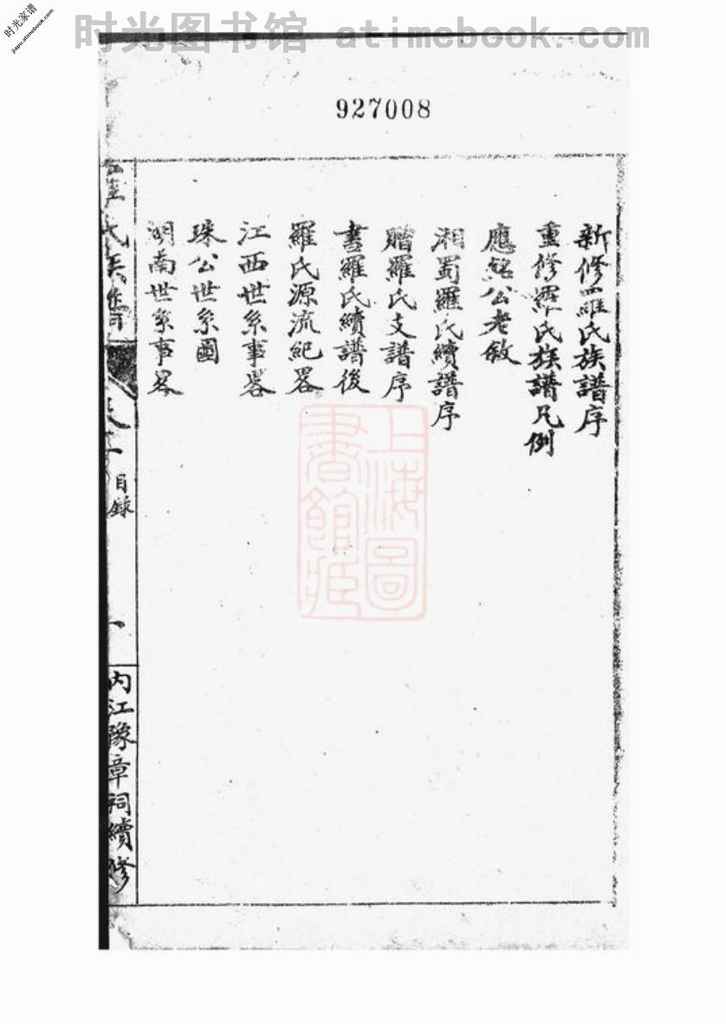 时光图书馆 atimebook.com
时光家谱
jiapu.atimebook.com
927008
新修羅氏族譜序
重修羅氏族譜凡例
應銘公老敘
湘蜀羅氏續譜序
贈羅氏支譜序
書羅氏續譜後
羅氏源流紀畧
江西世系事畧
珠公世系圖
湖南世系事畧
羅氏族譜
目錄
一
內江豫章祠續修
上海圖
書館藏